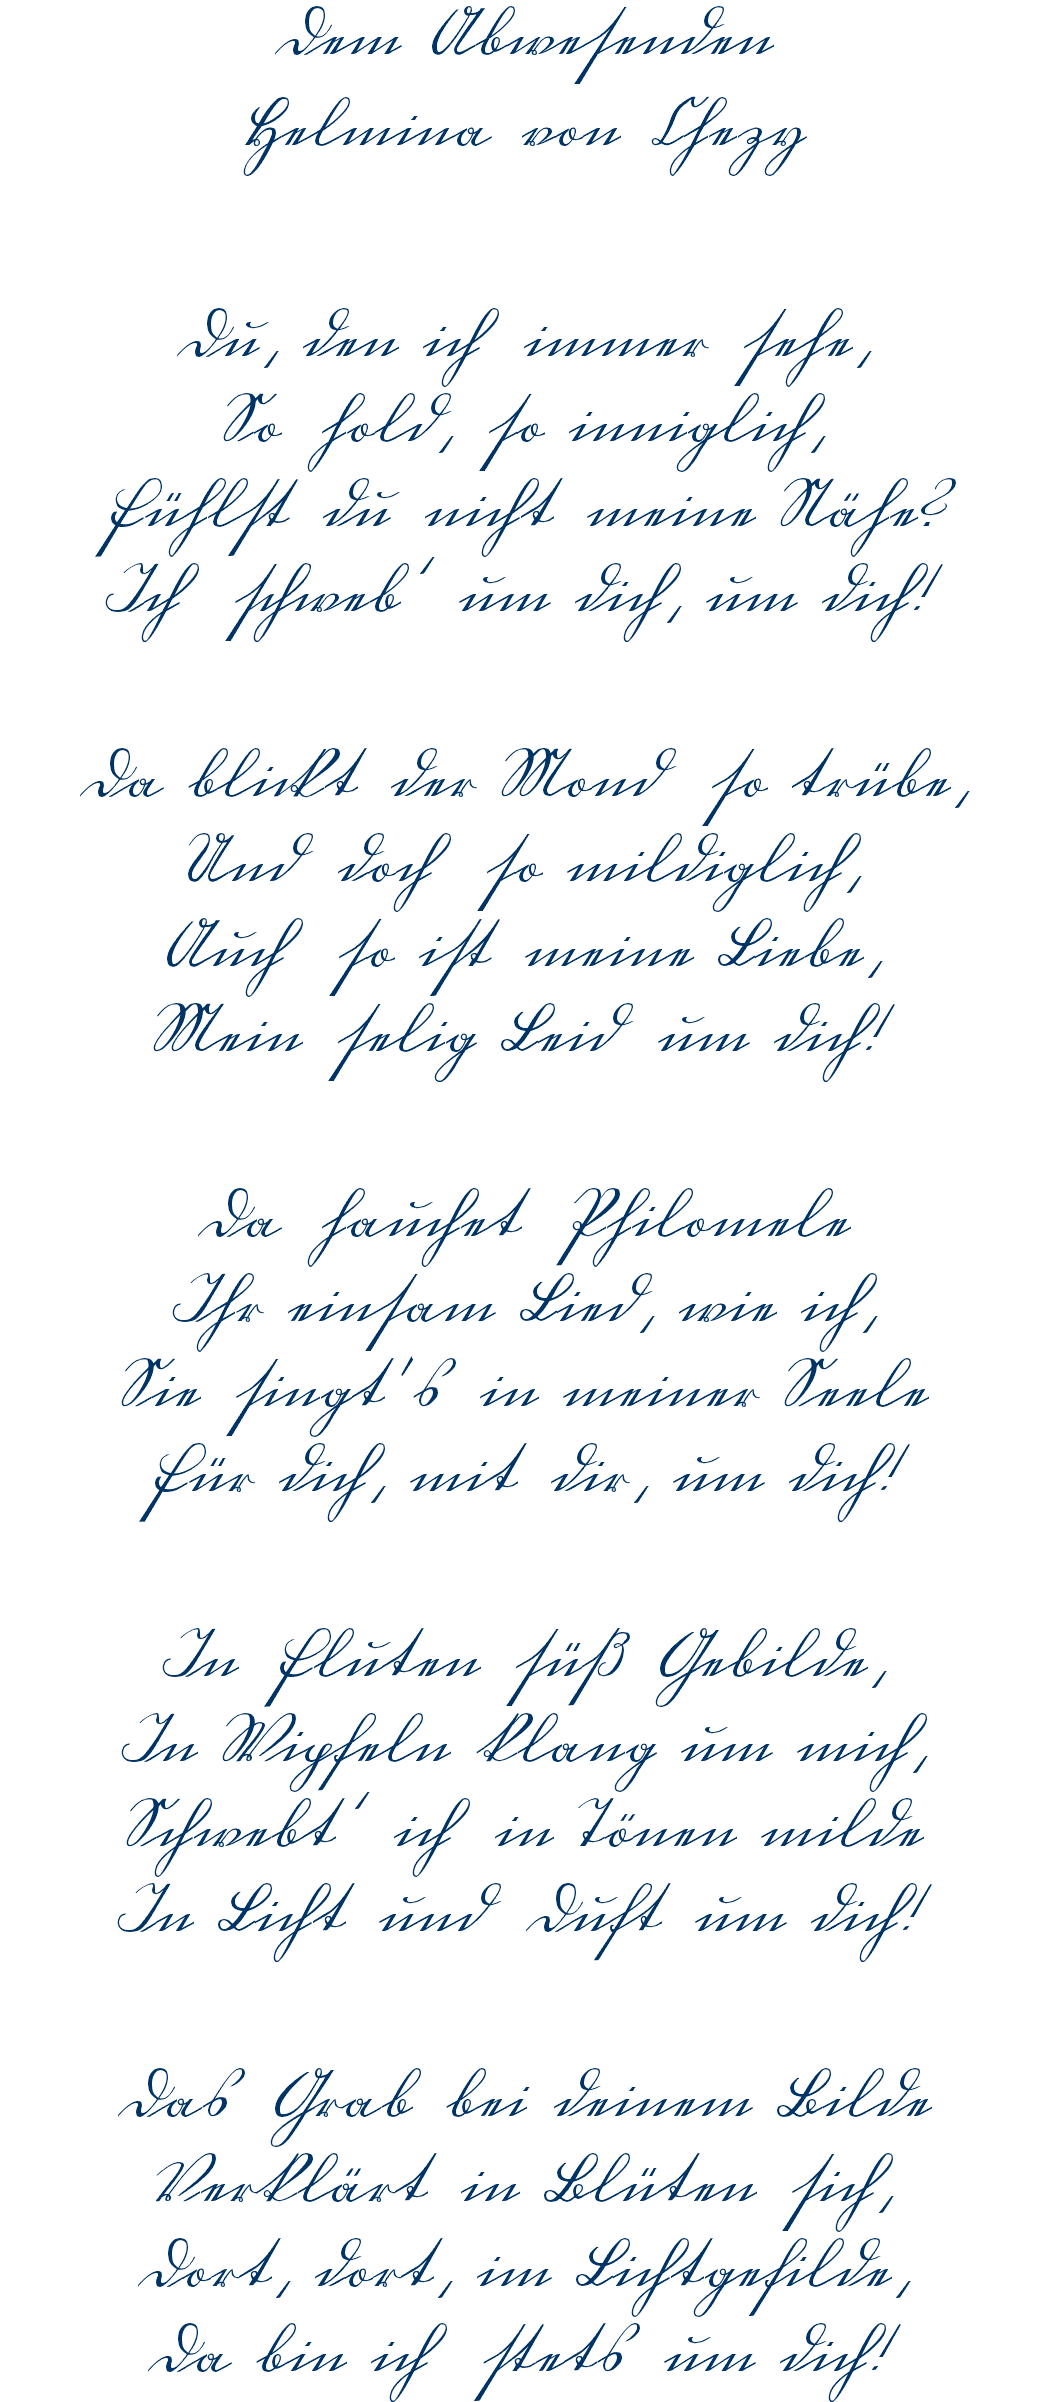 Dem Abwesenden
Helmina von Chezy
Du, den ich immer sehe,
So hold, so inniglich,
Fühlst du nicht meine Nähe?
Ich schweb' um dich, um dich!
Da blickt der Mond so trübe,
Und doch so mildiglich,
Auch so ist meine Liebe,
Mein selig Leid um dich!
Da hauchet Philomele
Ihr einsam Lied, wie ich,
Sie singt's in meiner Seele
Für dich, mit dir, um dich!
In Fluten süß Gebilde,
In Wipfeln Klang um mich,
Schwebt' ich in Tönen milde
In Licht und Duft um dich!
Das Grab bei deinem Bilde
Verklärt in Blüten sich,
Dort, dort, im Lichtgefilde,
Da bin ich stets um dich!